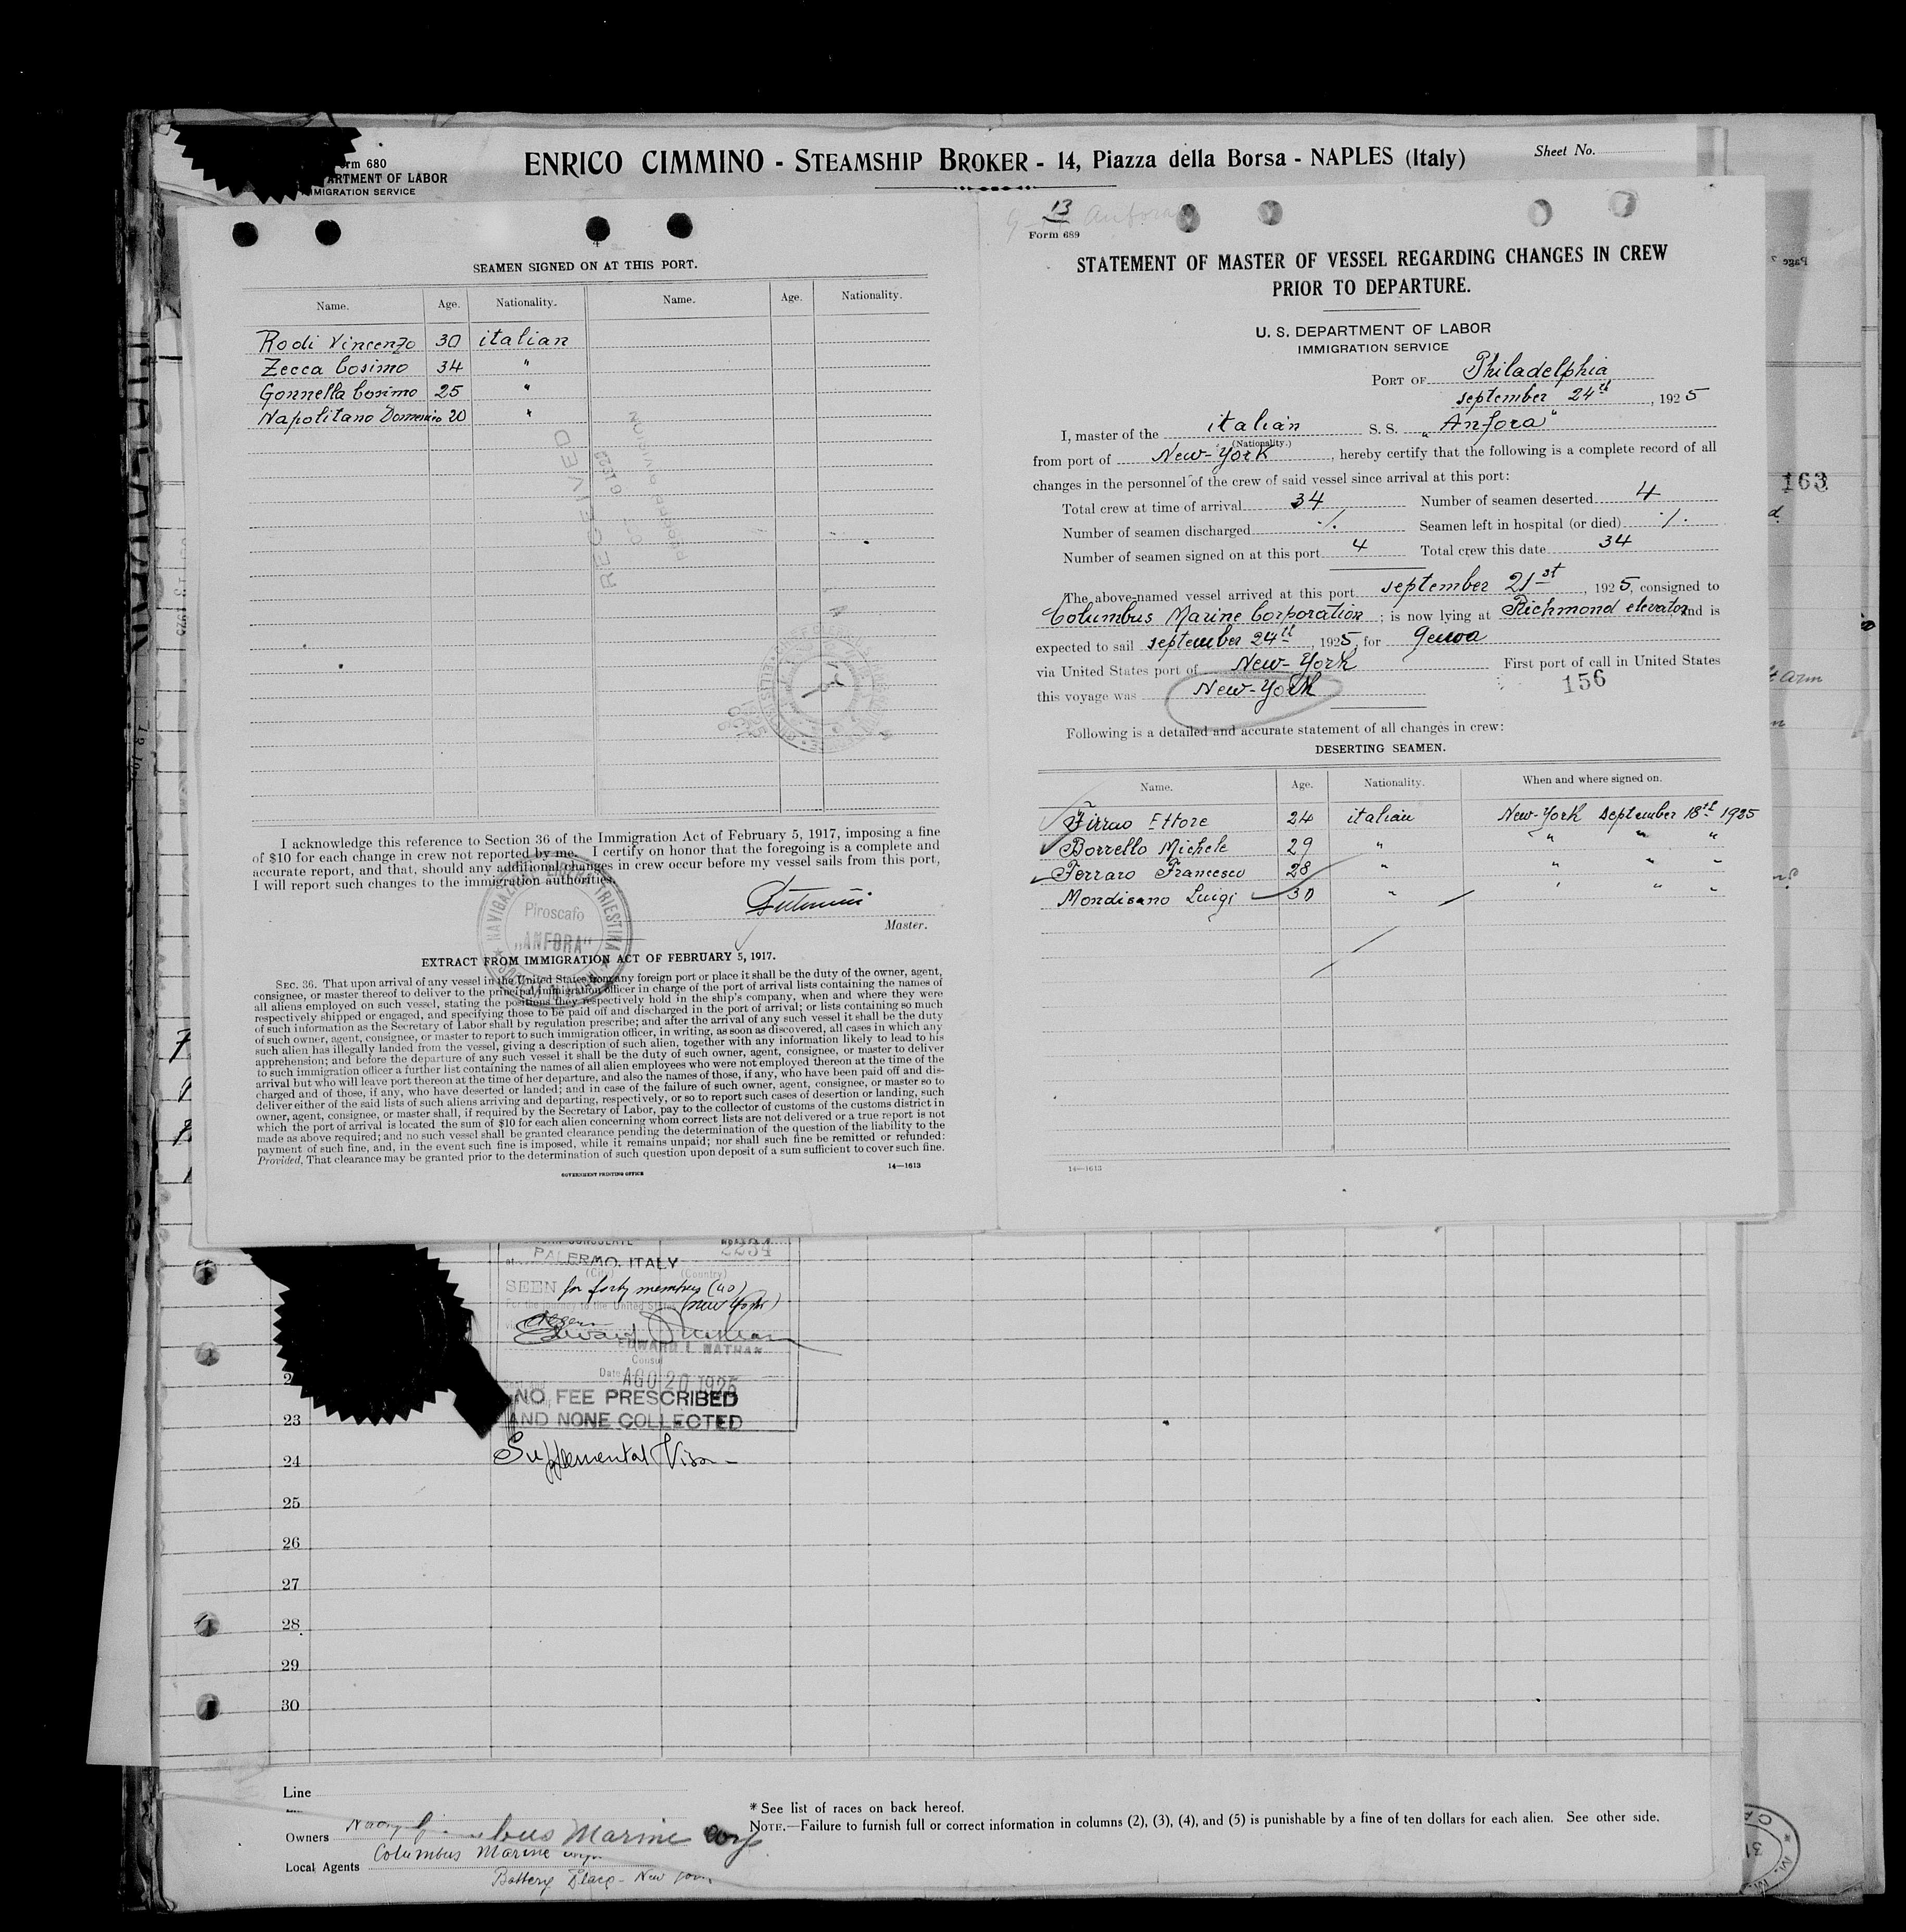 Form 680
DEPARTMENT OF LABOR
IMMIGRATION SERVICE
ENRICO CIMMINO - STEAMSHIP BROKER - 14, Piazza della Borsa - NAPLES (Italy)
Sheet No.
4
SEAMEN SIGNED ON AT THIS PORT.
Name. Age. Nationality. Name. Age. Nationality.
Rodi Vincenzo 30 italian
Zecca Cosimo 34 "
Gonnella Cosimo 25 "
Napolitano Domenico 20 "
RECEIVED
I acknowledge this reference to Section 36 of the Immigration Act of February 5, 1917, imposing a fine
of $10 for each change in crew not reported by me. I certify on honor that the foregoing is a complete and
accurate report, and that, should any additional changes in crew occur before my vessel sails from this port,
I will report such changes to the immigration authorities.
Master.
Piroscafo
"ANFORA"
EXTRACT FROM IMMIGRATION ACT OF FEBRUARY 5, 1917.
SEC. 36. That upon arrival of any vessel in the United States from any foreign port or place it shall be the duty of the owner, agent,
consignee, or master thereof to deliver to the principal immigration officer in charge of the port of arrival lists containing the names of
all aliens employed on such vessel, stating the positions they respectively hold in the ship's company, when and where they were
respectively shipped or engaged, and specifying those to be paid off and discharged in the port of arrival; or lists containing so much
of such information as the Secretary of Labor shall by regulation prescribe; and after the arrival of any such vessel it shall be the duty
of such owner, agent, consignee, or master to report to such immigration officer, in writing, as soon as discovered, all cases in which any
such alien has illegally landed from the vessel, giving a description of such alien, together with any information likely to lead to his
apprehension; and before the departure of any such vessel it shall be the duty of such owner, agent, consignee, or master to deliver
to such immigration officer a further list containing the names of all alien employees who were not employed thereon at the time of the
arrival but who will leave port thereon at the time of her departure, and also the names of those, if any, who have been paid off and dis-
charged and of those, if any, who have deserted or landed; and in case of the failure of such owner, agent, consignee, or master so to
deliver either of the said lists of such aliens arriving and departing, respectively, or so to report such cases of desertion or landing, such
owner, agent, consignee, or master shall, if required by the Secretary of Labor, pay to the collector of customs of the customs district in
which the port of arrival is located the sum of $10 for each alien concerning whom correct lists are not delivered or a true report is not
made as above required; and no such vessel shall be granted clearance pending the determination of the question of the liability to the
payment of such fine, and, in the event such fine is imposed, while it remains unpaid; nor shall such fine be remitted or refunded:
Provided, That clearance may be granted prior to the determination of such question upon deposit of a sum sufficient to cover such fine.
GOVERNMENT PRINTING OFFICE
14—1613
13 Anfora
Form 689
STATEMENT OF MASTER OF VESSEL REGARDING CHANGES IN CREW
PRIOR TO DEPARTURE.
U. S. DEPARTMENT OF LABOR
IMMIGRATION SERVICE
PORT OF Philadelphia
september 24th, 1925
I, master of the italian S. S. "Anfora"
(Nationality.)
from port of New-York, hereby certify that the following is a complete record of all
changes in the personnel of the crew of said vessel since arrival at this port:
Total crew at time of arrival 34 Number of seamen deserted 4
Number of seamen discharged ./. Seamen left in hospital (or died) ./.
Number of seamen signed on at this port 4 Total crew this date 34
The above-named vessel arrived at this port september 21st, 1925, consigned to
Columbus Marine Corporation; is now lying at Richmond elevator, and is
expected to sail september 24th, 1925, for genoa
via United States port of New-York First port of call in United States
this voyage was New-York 156
Following is a detailed and accurate statement of all changes in crew:
DESERTING SEAMEN.
Name. Age. Nationality. When and where signed on.
Firrao Ettore 24 italian New-York September 18th 1925
Borrello Michele 29 " " " "
Ferraro Francesco 28 " " " "
Mondisano Luigi 30 " " " "
14—1613
163
PALERMO, ITALY 2234
(City) (Country)
SEEN for forty members (40)
For the journey to the United States (New York)
EDWARD I. NATHAN
Consul
Date AGO 20 1925
NO FEE PRESCRIBED
AND NONE COLLECTED
Supplemental Visa
23
24
25
26
27
28
29
30
Line
Owners Marine Corp
Local Agents Columbus Marine
Battery Place - New York
* See list of races on back hereof.
NOTE.—Failure to furnish full or correct information in columns (2), (3), (4), and (5) is punishable by a fine of ten dollars for each alien. See other side.